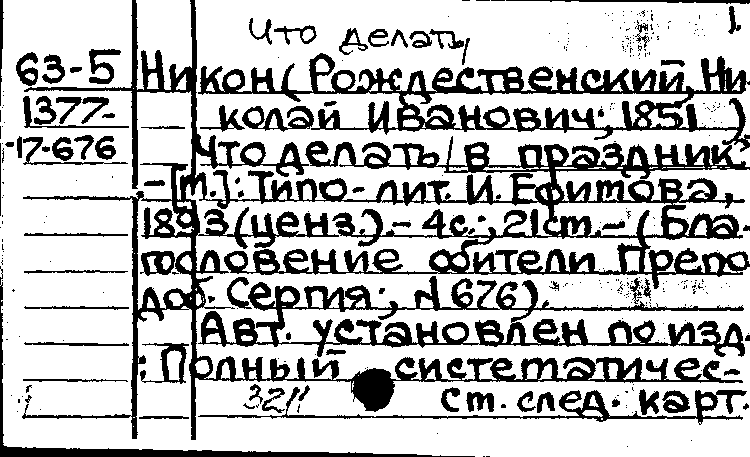 Что делать,
1.
63-5 Никон (Рождественский, Ни-
1377- колай Иванович; 1851 )
-17-676 Что делать/в праздник?
.-[М.]: Типо-лит. И. Ефимова,
1893(ценз.).- 4с.; 21см.- (Бла-
гословение обители Препо
доб. Сергия; №676).
Авт. установлен по изд.
: Полный систематичес-
3211 См. след. карт.